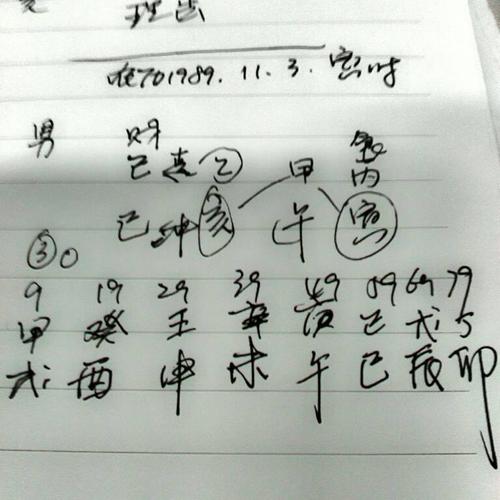 理法
1989.11.3.寅时
男 财
己 乙 甲 丙
己 亥 午 寅
③0
9 19 29 39 49 59 69 79
甲 癸 壬 辛 庚 己 戊
戌 酉 申 未 午 巳 辰 卯